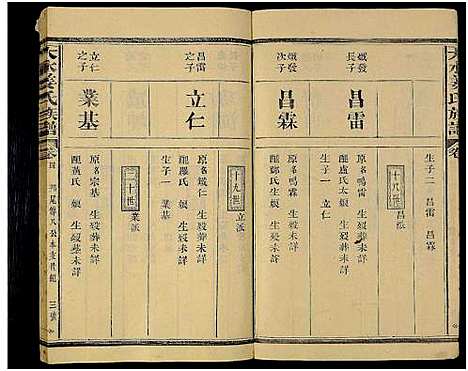 天水姜氏族譜
生子二 昌雷 昌霖
十八世
昌派
熾發
長子
昌雷
原名鳴雷 生歿葬未詳
配盧氏太娘 生歿葬未詳
生子一 立仁
熾發
次子
昌霖
配鄭氏 生歿葬未詳
十九世
立派
昌雷
之子
立仁
原名絨仁 生歿葬未詳
配羅氏 娘 生歿葬未詳
生子一 業基
二十世
業派
立仁
之子
業基
原名宗基 生歿葬未詳
配黃氏 娘 生歿墓未詳
天水姜氏族譜
三